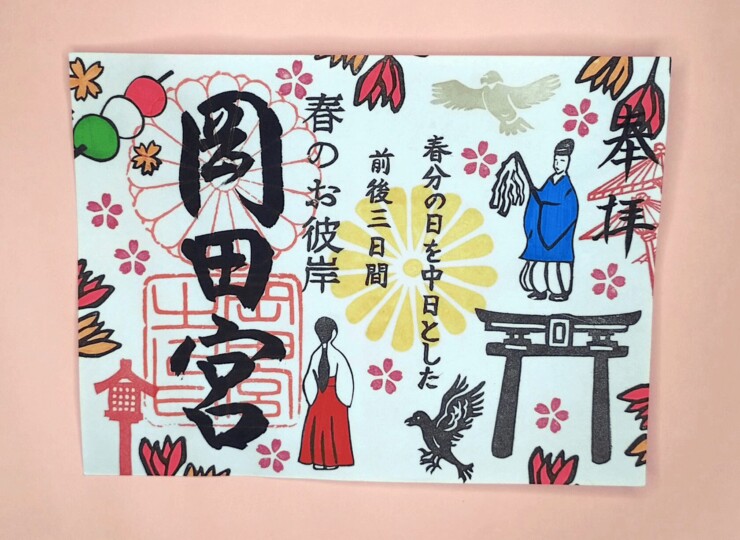 奉拝
春分の日を中日とした
前後三日間
春のお彼岸
岡田宮